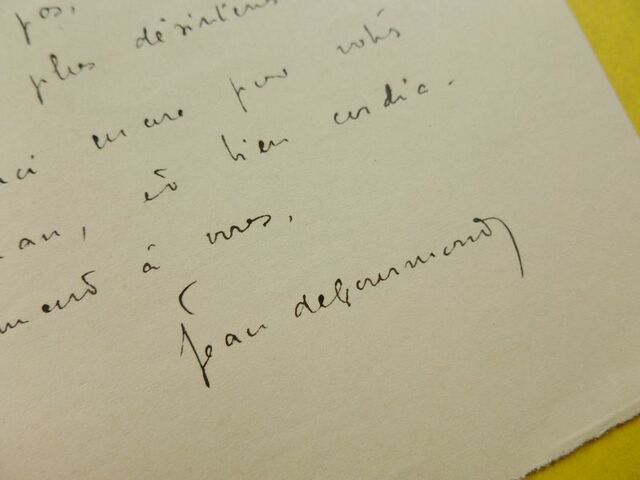 pas.
plus désintéres
ci encore pour votre
an, et bien cordia-
ment à vous,
Jean de Gourmont